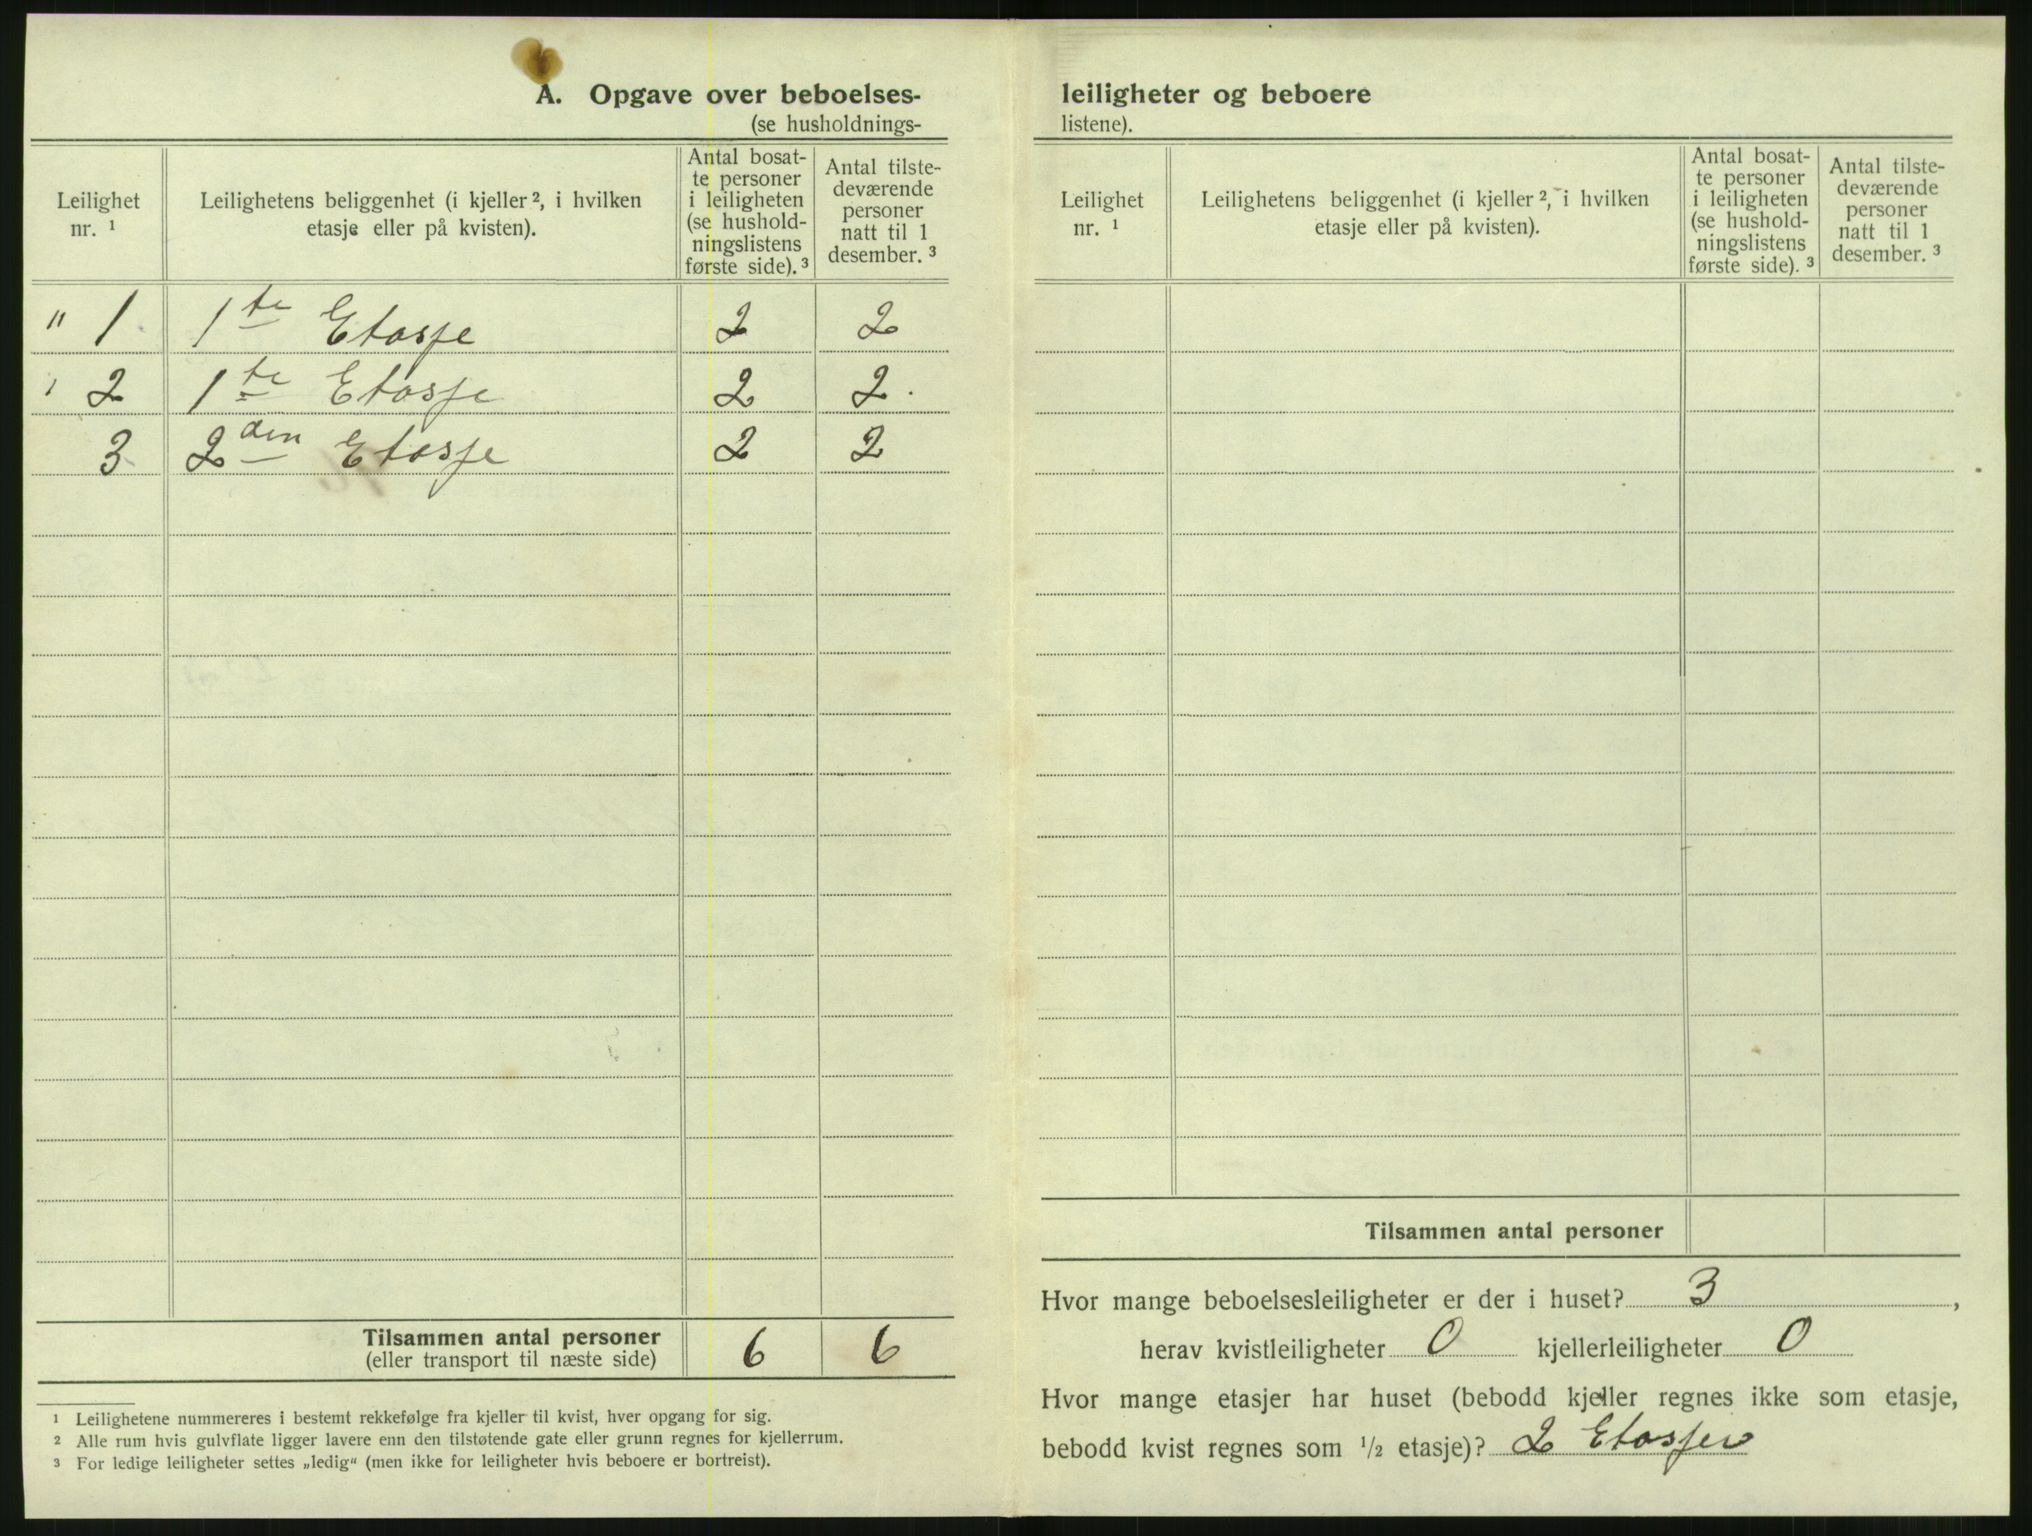 A. Opgave over beboelses-
(se husholdnings-
Leilighet nr. ¹
Leilighetens beliggenhet (i kjeller ², i hvilken etasje eller på kvisten).
Antal bosat-
te personer
i leiligheten
(se hushold-
ningslistens
første side). ³
Antal tilste-
deværende
personer
natt til 1
desember. ³
" 1 1te Etasje 2 2
" 2 1te Etasje 2 2.
3 2den Etasje 2 2
Tilsammen antal personer 6 6
(eller transport til næste side)
¹ Leilighetene nummereres i bestemt rekkefølge fra kjeller til kvist, hver opgang for sig.
² Alle rum hvis gulvflate ligger lavere enn den tilstøtende gate eller grunn regnes for kjellerrum.
³ For ledige leiligheter settes „ledig“ (men ikke for leiligheter hvis beboere er bortreist).
leiligheter og beboere
listene).
Leilighet nr. ¹
Leilighetens beliggenhet (i kjeller ², i hvilken etasje eller på kvisten).
Antal bosat-
te personer
i leiligheten
(se hushold-
ningslistens
første side). ³
Antal tilste-
deværende
personer
natt til 1
desember. ³
Tilsammen antal personer
Hvor mange beboelsesleiligheter er der i huset? 3,
herav kvistleiligheter 0 kjellerleiligheter 0
Hvor mange etasjer har huset (bebodd kjeller regnes ikke som etasje,
bebodd kvist regnes som ½ etasje)? 2 Etasjer